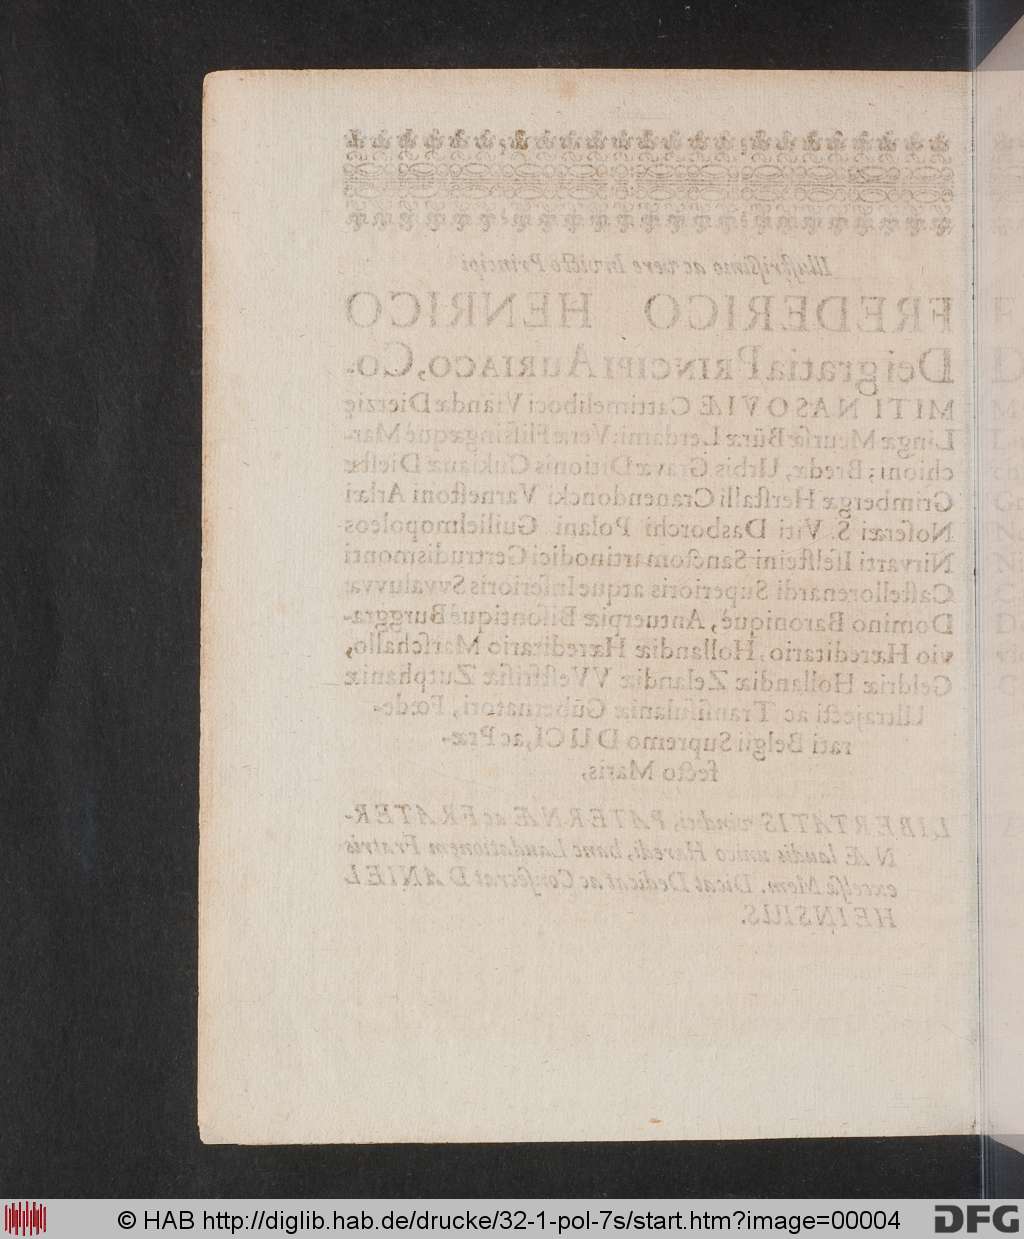 Illustrissimo ac vere Invicto Principi
FREDERICO HENRICO
Dei gratia PRINCIPI AURIACO, Co-
MITI NASOVIÆ Cattimeliboci Viandæ Dierzig
Lingæ Meursiæ Büræ Leerdami: Veræ Flissingæqué Mar-
chioni; Bredæ, Urbis Gravæ Ditionis Cukianæ Diestæ
Grimbergæ Herstalli Cranendoncki Varnestoni Arlæi
Noseræi S. Viti Dasborchi Polani Guilielmopoleos
Nirvarti Isselsteini Sanctomartinodici Gertrudismonti
Castellorenardi Superioris atque Inferioris Svvaluvvæ
Domino Baronique, Antuerpiæ Bisontiqué Burggra-
vio Hæreditario, Hollandiæ Hæreditario Marschallo,
Geldriæ Hollandiæ Zelandiæ VVestfrisiæ Zutphaniæ
Ultrajecti ac Transisulaniæ Gubernatori, Fœde-
rati Belgii Supremo DUCI, ac Præ-
fecto Maris,
LIBERTATIS vindicis PATERNÆ ac FRATER-
NÆ laudis unico Hæredi, hanc Laudationem Fratris
excelsæ Mem. Dicat Dedicat ac Consecrat DANIEL
HEINSIUS.
© HAB http://diglib.hab.de/drucke/32-1-pol-7s/start.htm?image=00004
DFG